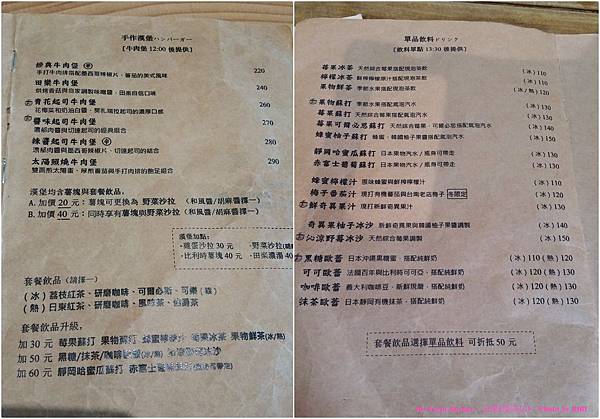 手作漢堡ハンバーガー
[牛肉堡 12:00 後提供]
經典牛肉堡
手打牛肉排搭配墨西哥辣椒片、蕃茄的美式風味 220
田樂牛肉堡
烘烤香菇與自家調製味噌醬，田樂自信口味 240
青花起司牛肉堡
花椰菜和奶油白醬、莫札瑞拉起司的濃厚口感 260
醬味起司牛肉堡
濃郁肉醬與切達起司的經典組合 270
辣醬起司牛肉堡
濃郁肉醬與墨西哥辣椒片、切達起司的結合 280
太陽照燒牛肉堡
雙面煎太陽蛋、厚煎蕃茄與手打肉排的飽足組合 290
漢堡均含薯塊與套餐飲品。
A. 加價 20 元：薯塊可更換為 野菜沙拉 （和風醬/胡麻醬擇一）
B. 加價 40 元：同時享有薯塊與野菜沙拉 （和風醬/胡麻醬擇一）
漢堡加點:
-雞蛋沙拉 30 元 -野菜沙拉
-比利時薯塊 40 元 -田樂濃湯 40
套餐飲品（請擇一）
（冰）荔枝紅茶、研磨咖啡、可爾必思、可樂
（熱）日東紅茶、研磨咖啡、
套餐飲品升級，
加 30 元 莓果蘇打 果物蘇打 果物鮮茶(冰/熱)
加 50 元 黑糖/抹茶/咖啡
加 60 元 靜岡哈蜜瓜蘇打 赤富士
單品飲料ドリンク
[飲料單點 13:30 後提供]
莓果冰茶 天然綜合莓果搭配現泡茶飲 （冰）110
檸檬冰茶 鮮榨檸檬原汁搭配現泡茶飲 （冰）110
果物鮮茶 季節水果搭配現泡茶飲 （冰/熱）120
果物蘇打 季節水果搭配氣泡汽水 （冰）120
莓果蘇打 天然綜合莓果搭配氣泡汽水 （冰）120
莓果可爾必思蘇打 天然綜合莓果、可爾必思搭配氣泡汽水 （冰）130
蜂蜜柚子蘇打 蜂蜜、韓國柚子果醬搭配氣泡汽水 （冰）140
靜岡哈蜜瓜蘇打 日本果物汽水 / 瓶身可帶走 （冰）130
赤富士葡萄蘇打 日本果物汽水 / 瓶身可帶走 （冰）130
蜂蜜檸檬汁 原味蜂蜜與鮮榨檸檬汁 （冰）110
梅子番茄汁 現打有機蕃茄與台南老店梅子 冬限定 （冰）130
鮮奇異果汁 現打新鮮奇異果汁 （冰）130
奇異果柚子冰沙 新鮮奇異果與韓國柚子果醬調製 （冰）140
沁涼野莓冰沙 天然綜合莓果調製 （冰）150
黑糖歐蕾 日本沖繩黑糖蜜，搭配純鮮奶 （冰）110（熱）120
可可歐蕾 法國百年與比利時可可亞，搭配純鮮奶 （冰）120（熱）130
咖啡歐蕾 義大利咖啡豆，新鮮現磨，搭配純鮮奶 （冰）120（熱）130
抹茶歐蕾 日本靜岡有機抹茶，搭配純鮮奶 （冰）120（熱）130
套餐飲品選擇單品飲料 可折抵 50 元